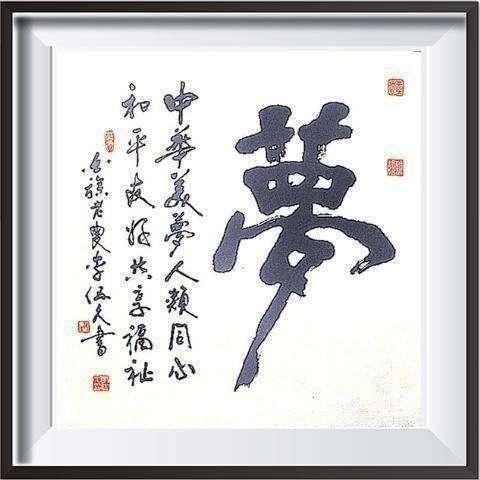 夢
中華美夢人類同心
和平友好共享福祉
老叟李伍久書